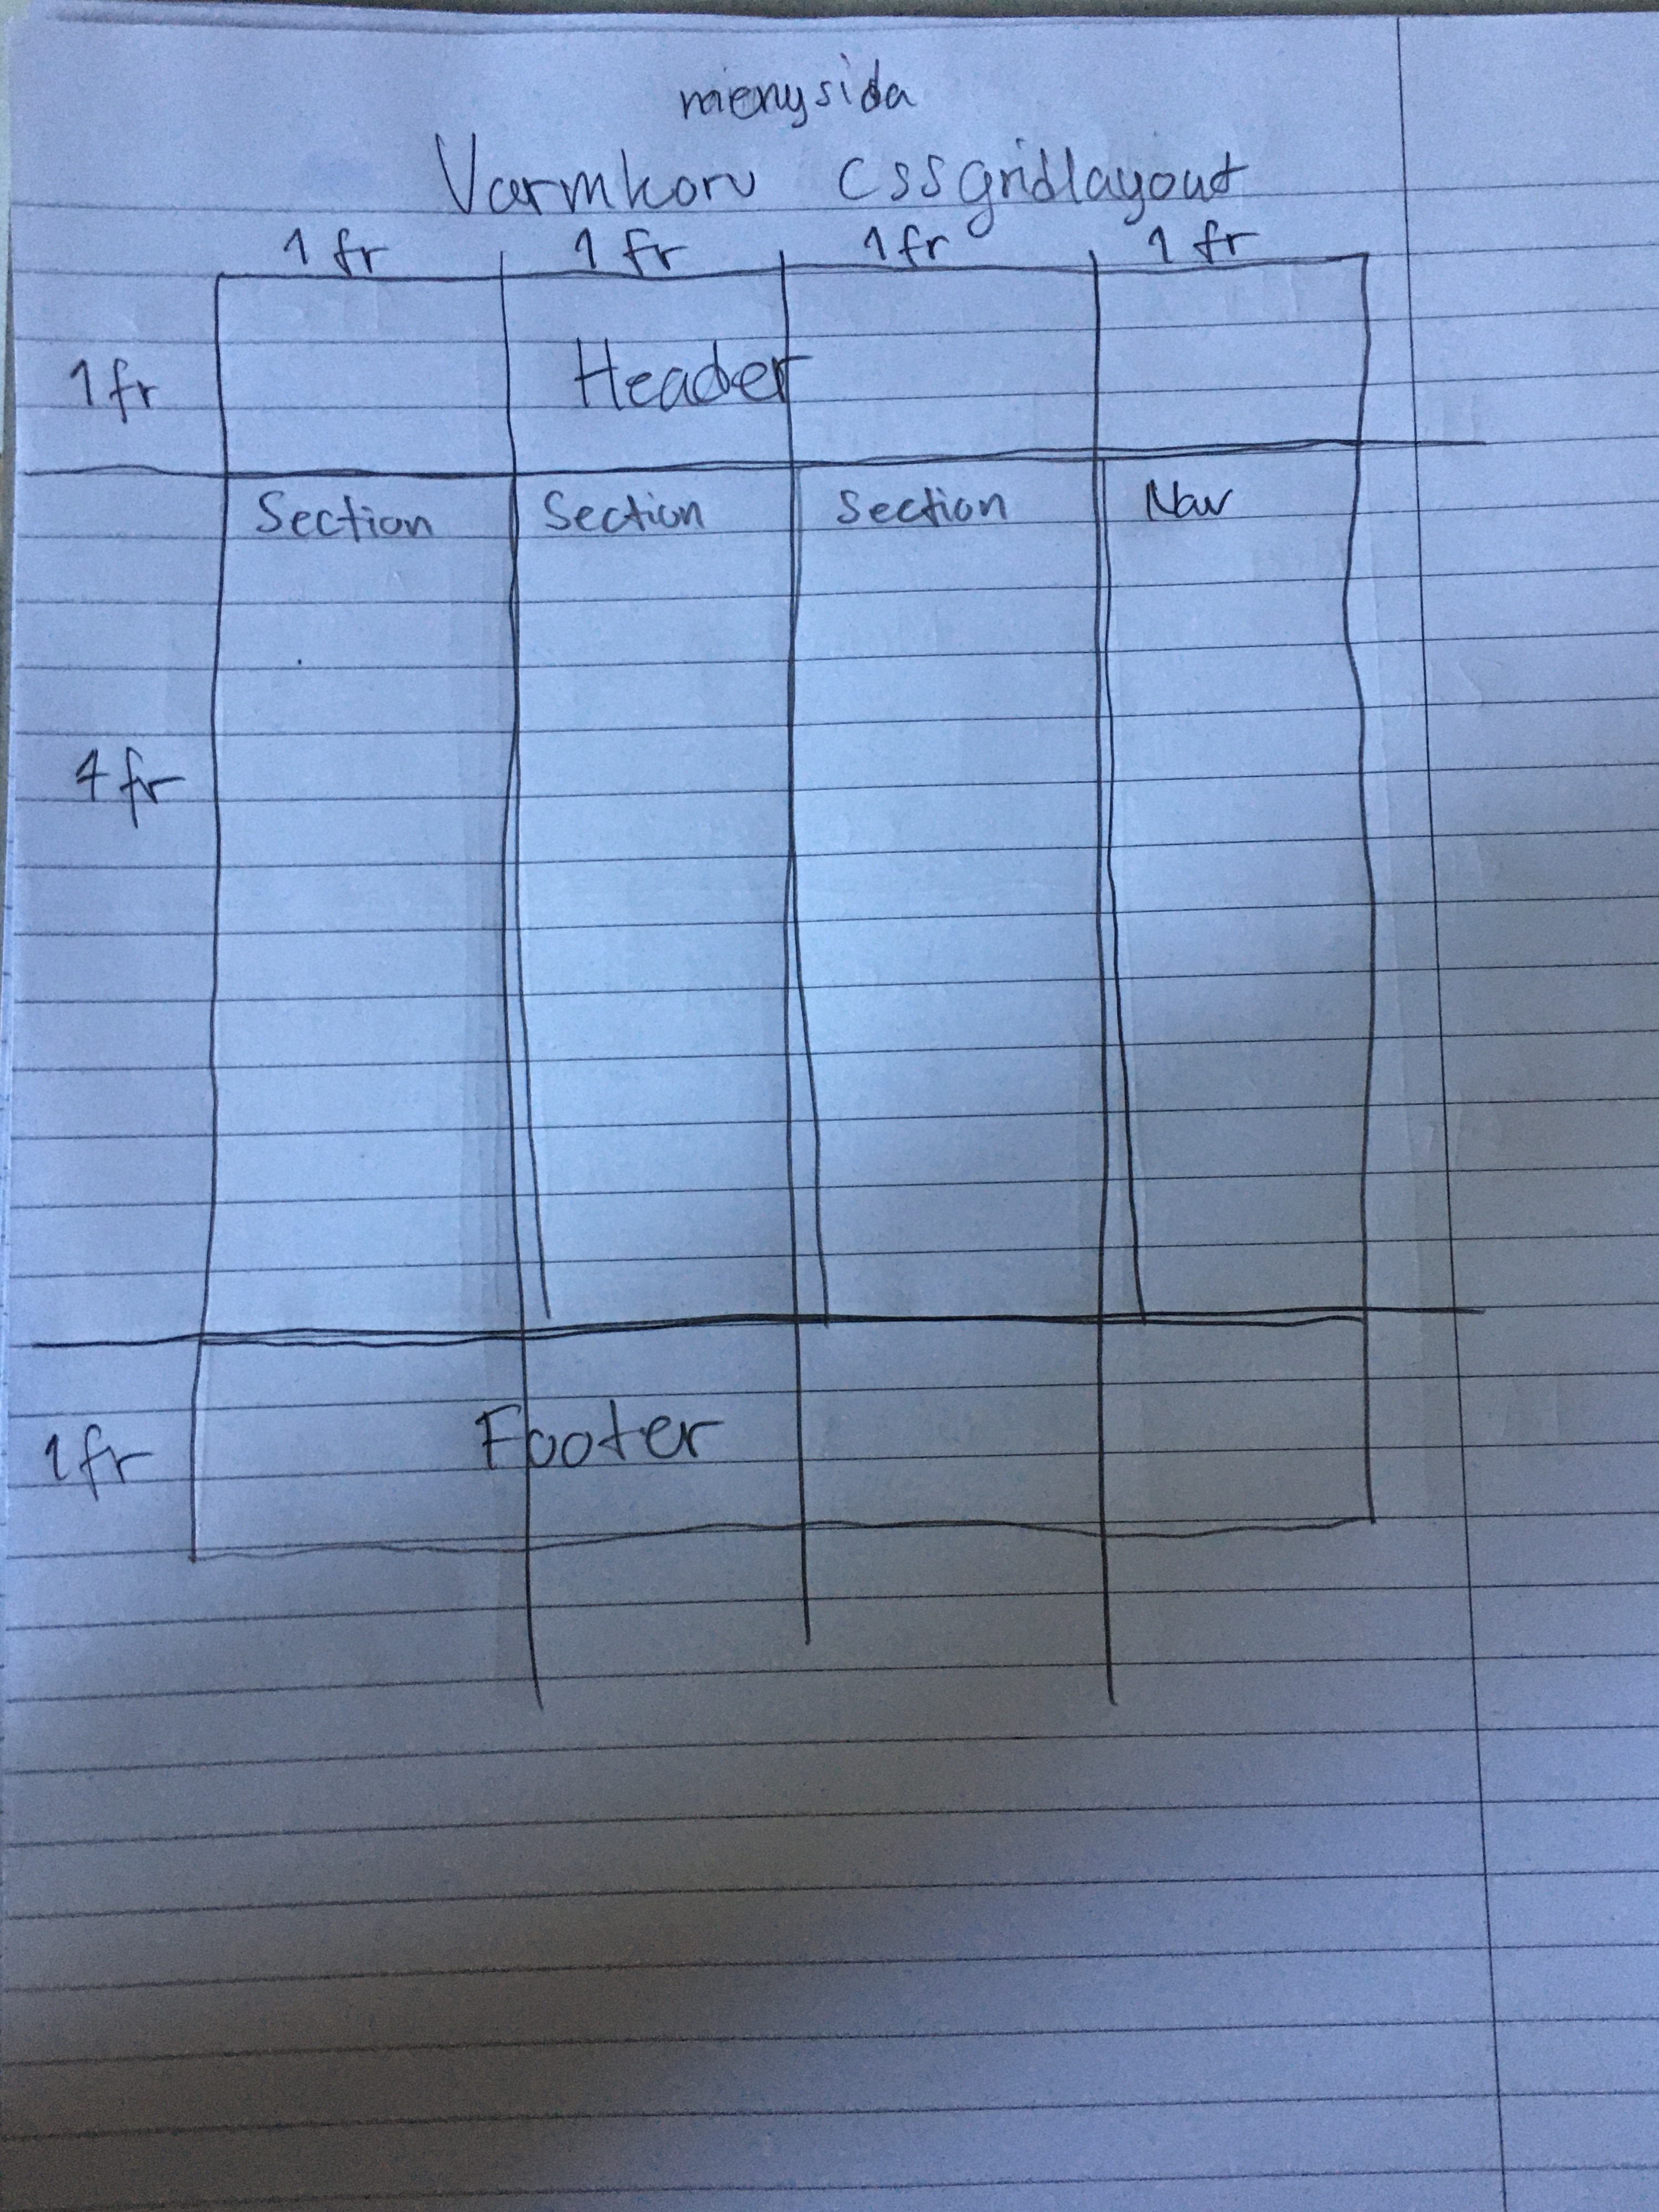 menysida
Varmkorv cssgridlayout
1 fr 1 fr 1 fr 1 fr
1 fr
Header
Section Section Section Nav
4 fr
1 fr
Footer